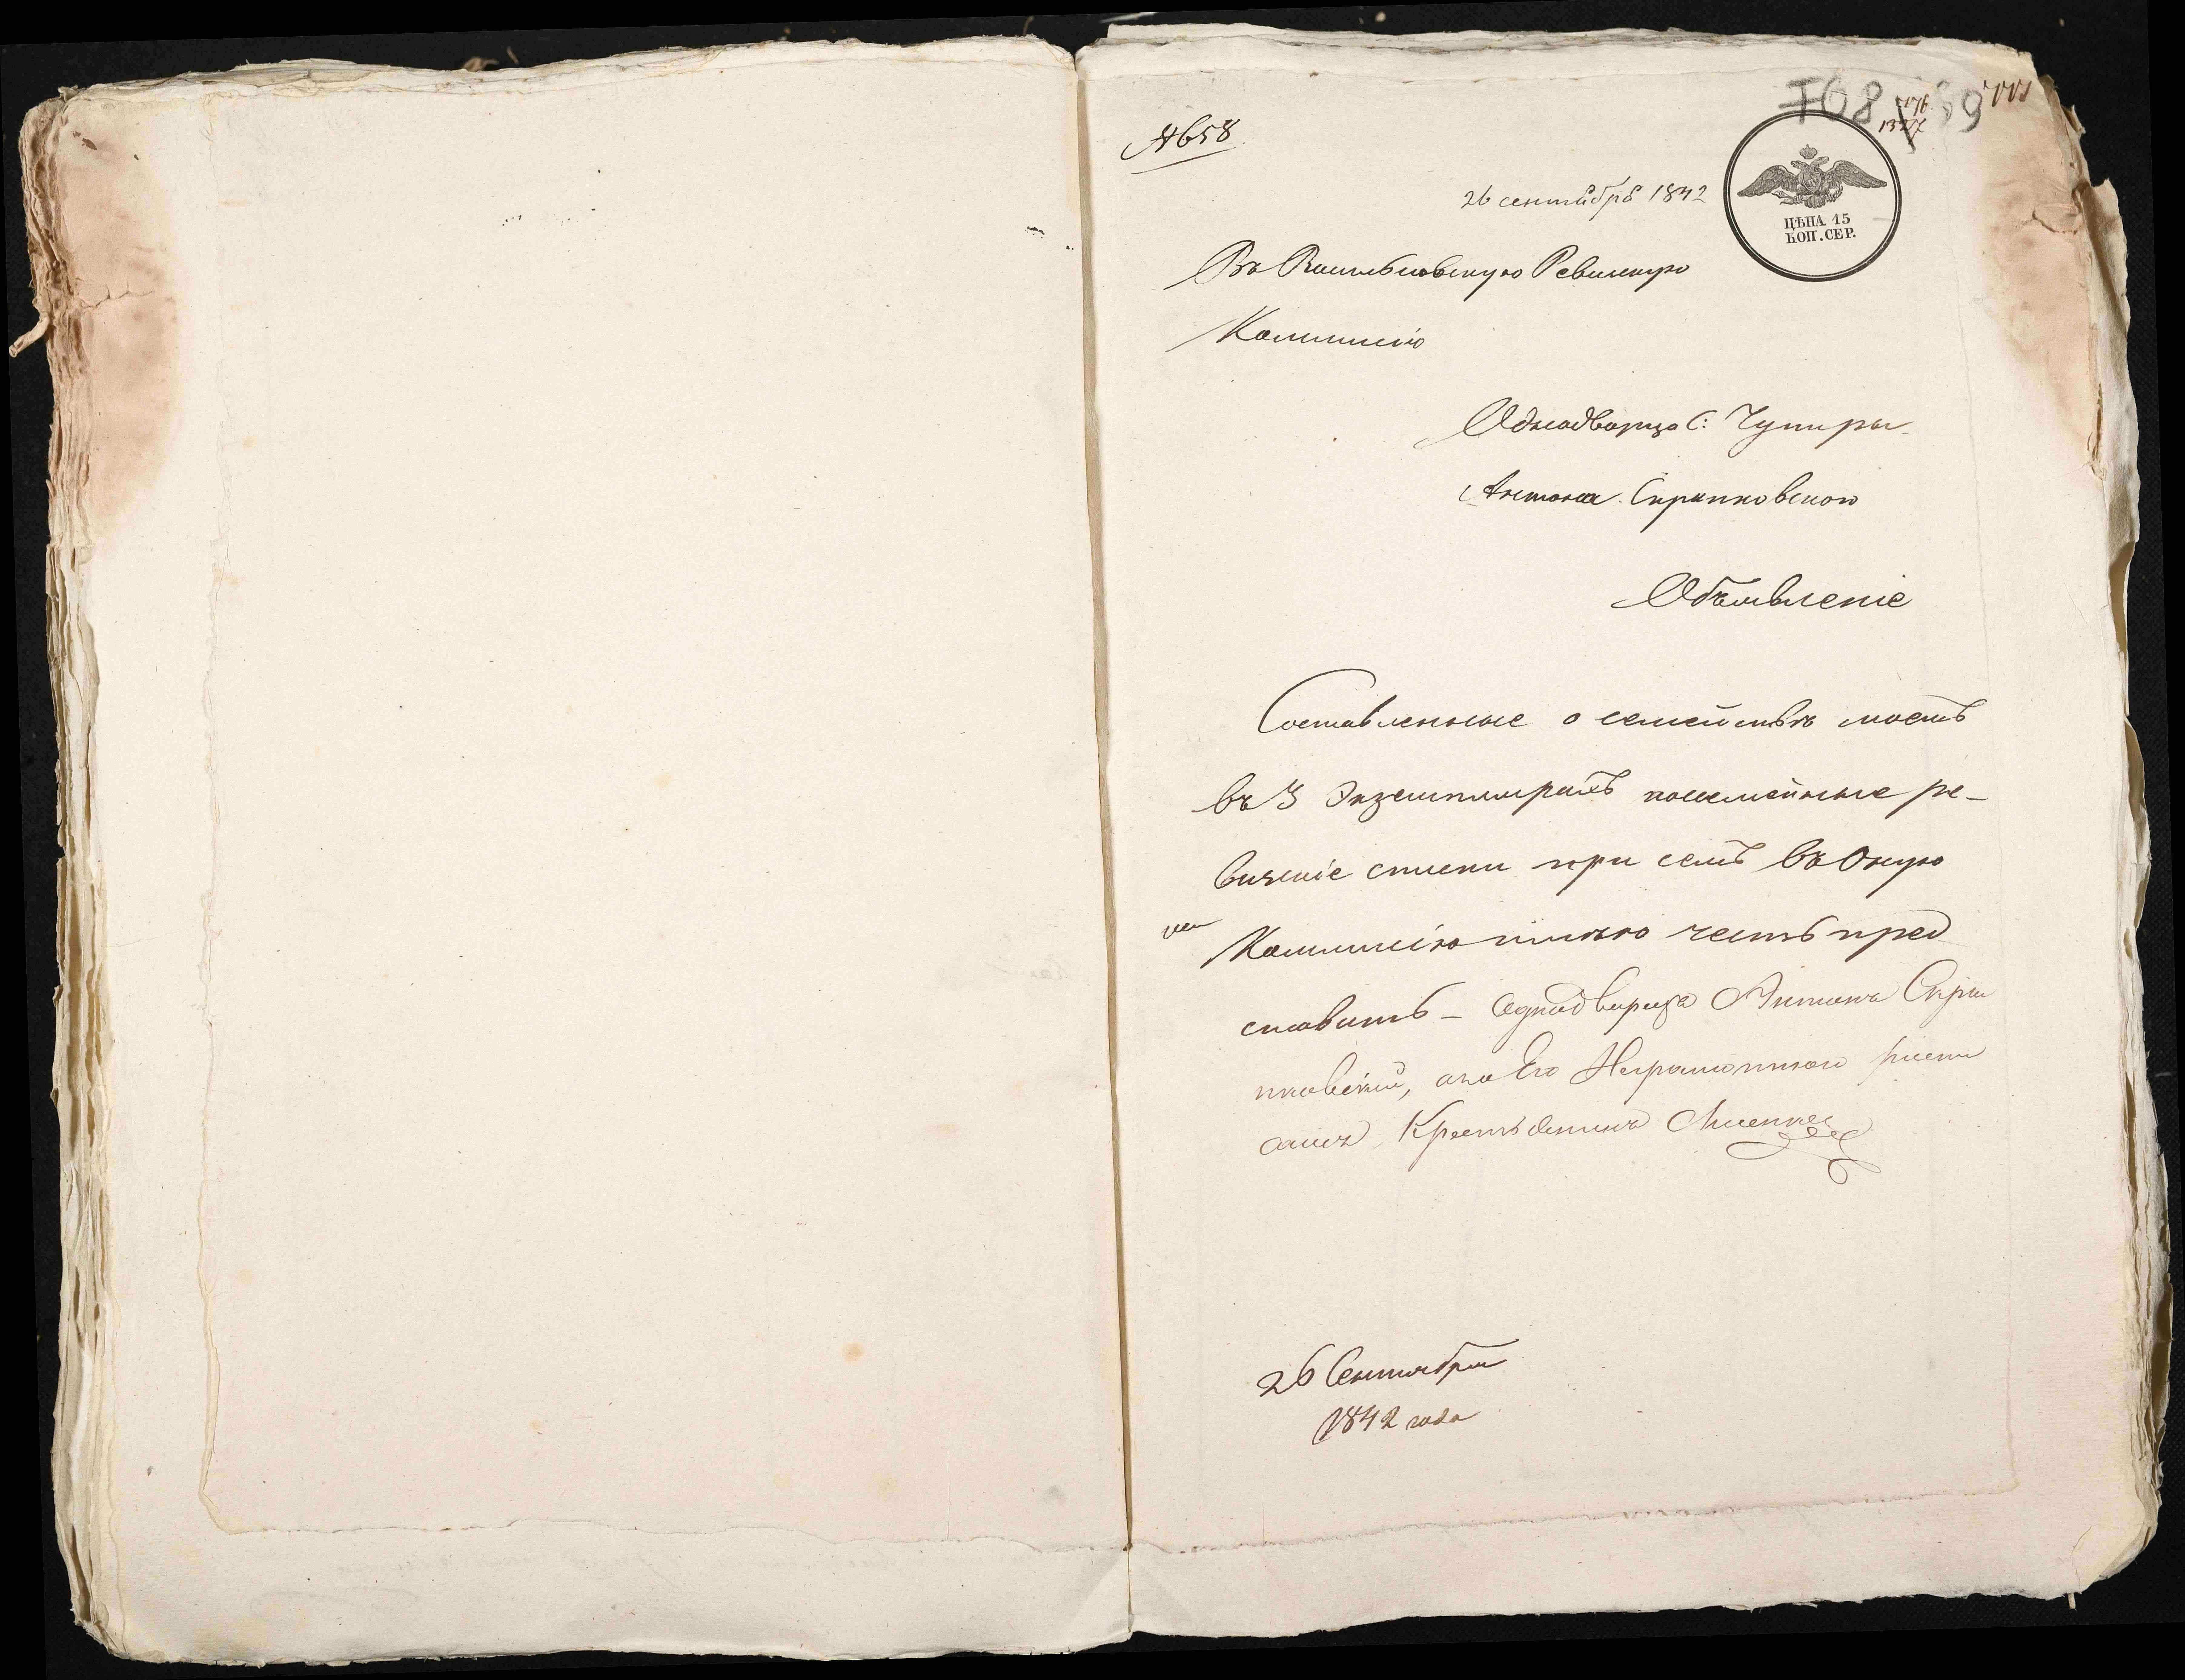 № 658
26 сентября 1842
ЦѢНА 15
КОП. СЕР.
Въ Васильковскую Ревизскую
Коммисію
Однодворца С: Чупиры
Антона Скрипковского
Объявленіе
Составленные о семействѣ моемъ
въ 3 Экземплярахъ посемейные ре-
визскіе списки при семъ въ Оную
Коммисію имѣю честь пред
ставить – Однодворца Антона Скри
пковскій, а за Его Неграмотного росписи
ался Крестьянинъ
26 Сентября
1842 года